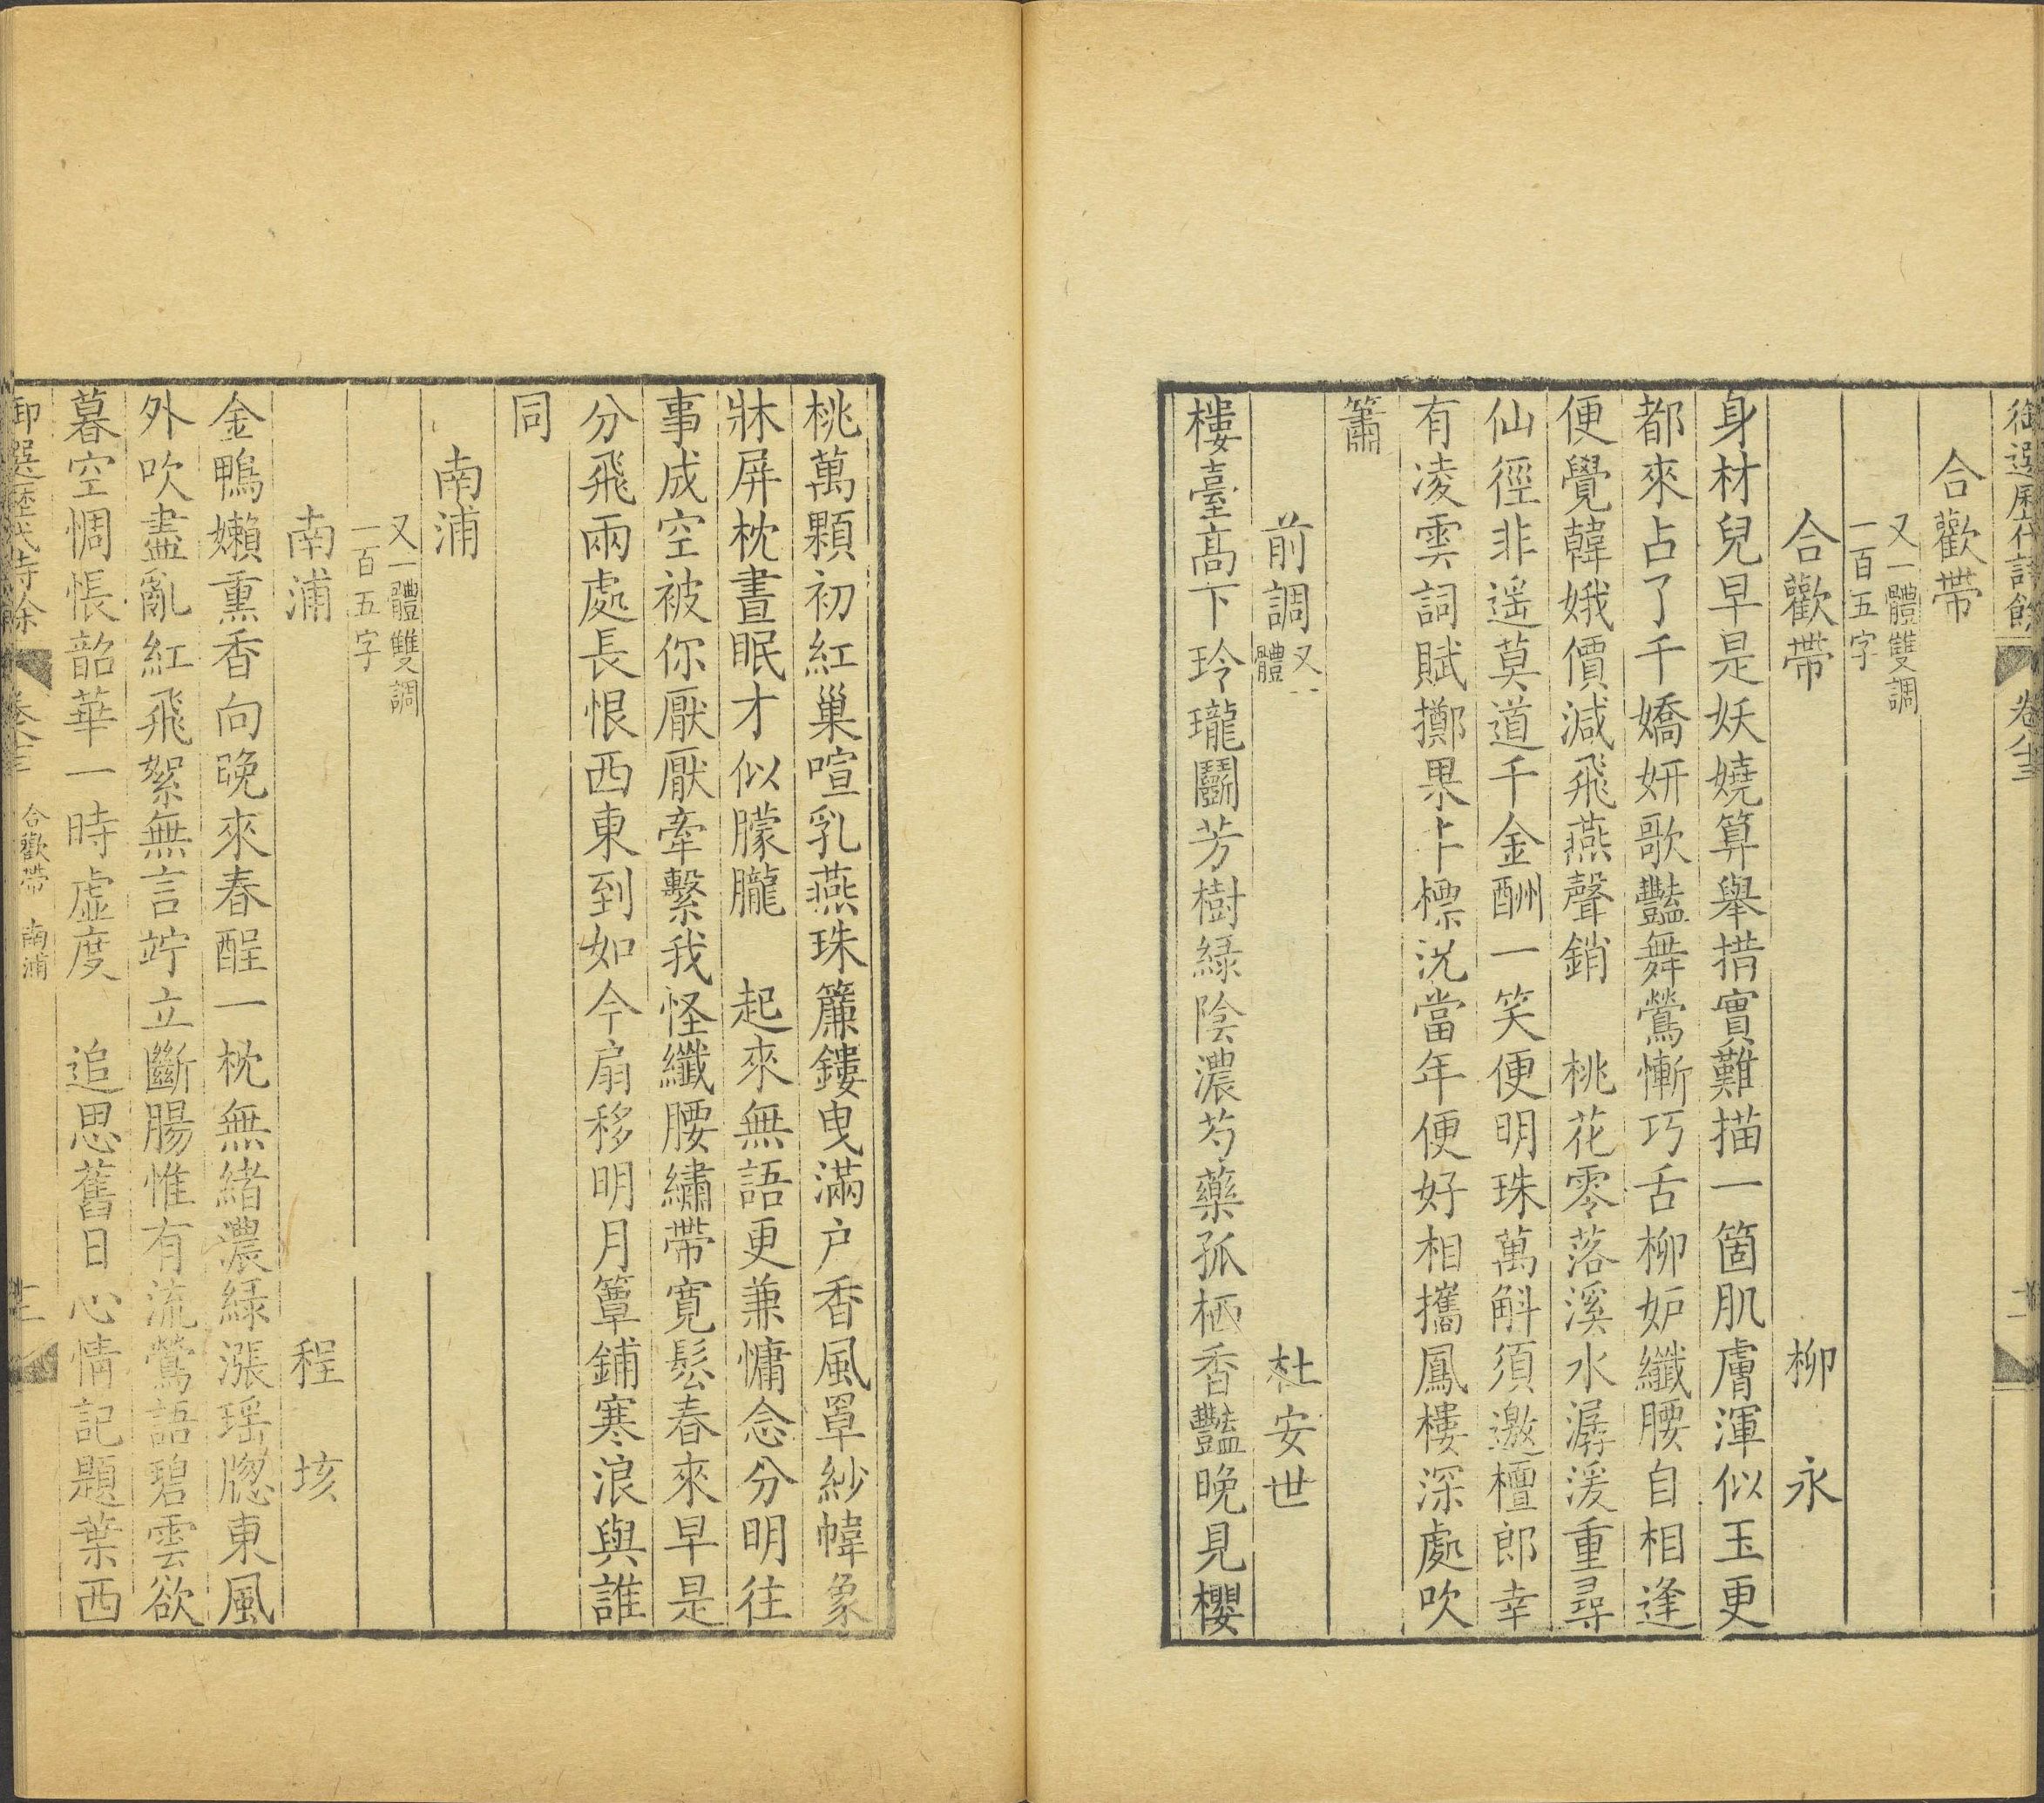 御選歷代詩餘 卷八十三
合歡帶
又一體雙調
一百五字
合歡帶 柳永
身材兒早是妖嬈算舉措實難描一箇肌膚渾似玉更
都來占了千嬌妍歌豔舞鶯慚巧舌柳妒纖腰自相逢
便覺韓娥價減飛燕聲銷 桃花零落溪水潺湲重尋
仙徑非遥莫道千金酬一笑便明珠萬斛須邀檀郎幸
有凌雲詞賦擲果丰標況當年便好相攜鳳樓深處吹
簫
前調 又一體 杜安世
樓臺高下玲瓏鬬芳樹緑陰濃芍藥孤栖香豔晚見櫻
桃萬顆初紅巢喧乳燕珠簾鏤曳滿户香風罩紗幃象
牀屏枕晝眠才似朦朧 起來無語更兼慵念分明往
事成空被你厭厭牽繫我怪纖腰繡帶寬鬆春來早是
分飛兩處長恨西東到如今扇移明月簟鋪寒浪與誰
同
南浦
又一體雙調
一百五字
南浦 程垓
金鴨嬾熏香向晚來春酲一枕無緒濃緑漲瑶牕東風
外吹盡亂紅飛絮無言竚立斷腸惟有流鶯語碧雲欲
暮空惆悵韶華一時虛度 追思舊日心情記題葉西
御選歷代詩餘 卷八十三 合歡帶 南浦